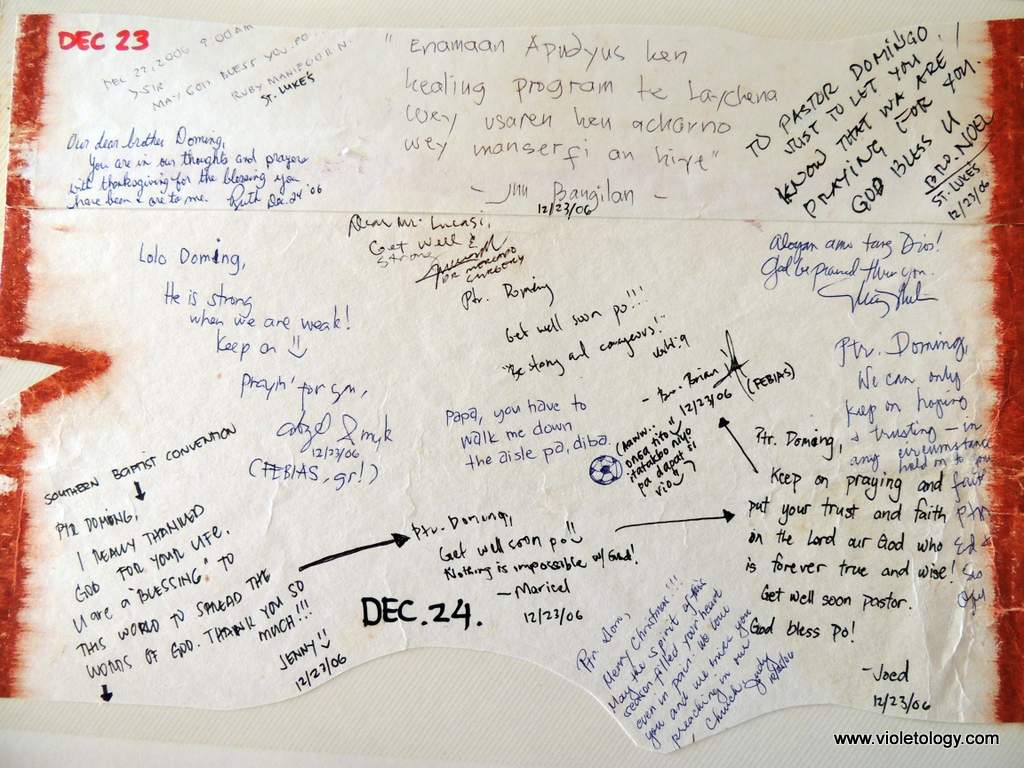 DEC 23
DEC 22, 2006 9:00AM
MAY GOD BLESS YOU PO...
RUBY
ST. LUKE'S
Our dear brother Doming,
You are in our thoughts and prayers
with thanksgiving for the blessing you
have been & are to me. Ruth Dec. 24 '06
"Enamaan Apudyus ken
healing program te Laychena
wey usaren hen acharno
wey manserfi an hiye"
Bangilan -
12/23/06
TO PASTOR DOMINGO,
JUST TO LET YOU
KNOW THAT WA ARE
PRAYING FOR YOU.
GOD BLESS U
BRO. NOEL
ST. LUKES
12/23/06
Dear Mr. Lucasi,
Get well &
strong
SURGERY
Lolo Doming,
He is strong
when we are weak!
Keep on
Prayin' for you,
12/23/06
(FEBIAS, gr!)
Ptr. Doming
Get well soon po!!!
"Be strong and courageous!"
- Bro. Brian
12/23/06
(FEBIAS)
God be praised thru you.
Papa, you have to
walk me down
the aisle pa, diba.
(aaww..
onga tito
tatakbo niyo
pa dapat si
vio
Ptr. Doming,
We can only
keep on hoping
& trusting - in
any circumstance
hold on to your
faith
Ptr.
Ed &
SOUTHERN BAPTIST CONVENTION
PTR DOMING,
I REALLY THANKED
GOD FOR YOUR LIFE.
U ARE A "BLESSING" TO
THIS WORLD TO SPREAD THE
WORDS OF GOD. THANK YOU SO
MUCH!!!
JENNY
12/23/06
Ptr. Doming,
Get well soon po
Nothing is impossible w/ God!
- Maricel
12/23/06
DEC. 24.
Ptr. Doming,
Keep on praying and
put your trust and faith
on the Lord our God who
is forever true and wise!
Get well soon pastor.
God bless po!
- Joed
12/23/06
Ptr. Dom,
Merry Christmas!!!
May the spirit of this
season filled your heart
even in pain. We love
you and we miss you
preaching in our
church
www.violetology.com